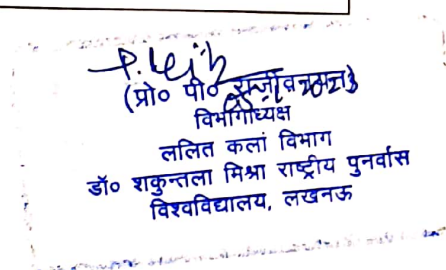 (प्रो० पी०
विभागाध्यक्ष
ललित कला विभाग
डॉ० शकुन्तला मिश्रा राष्ट्रीय पुनर्वास
विश्वविद्यालय, लखनऊ